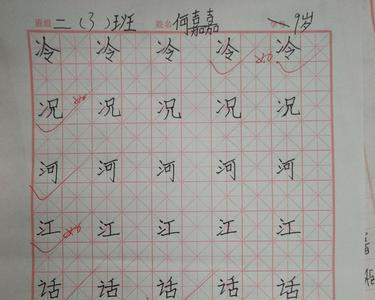 班级二(3)班 姓名何嘉嘉 9岁
冷冷冷冷冷
况况况况况
河河河河河
江江江江江
话话话话话